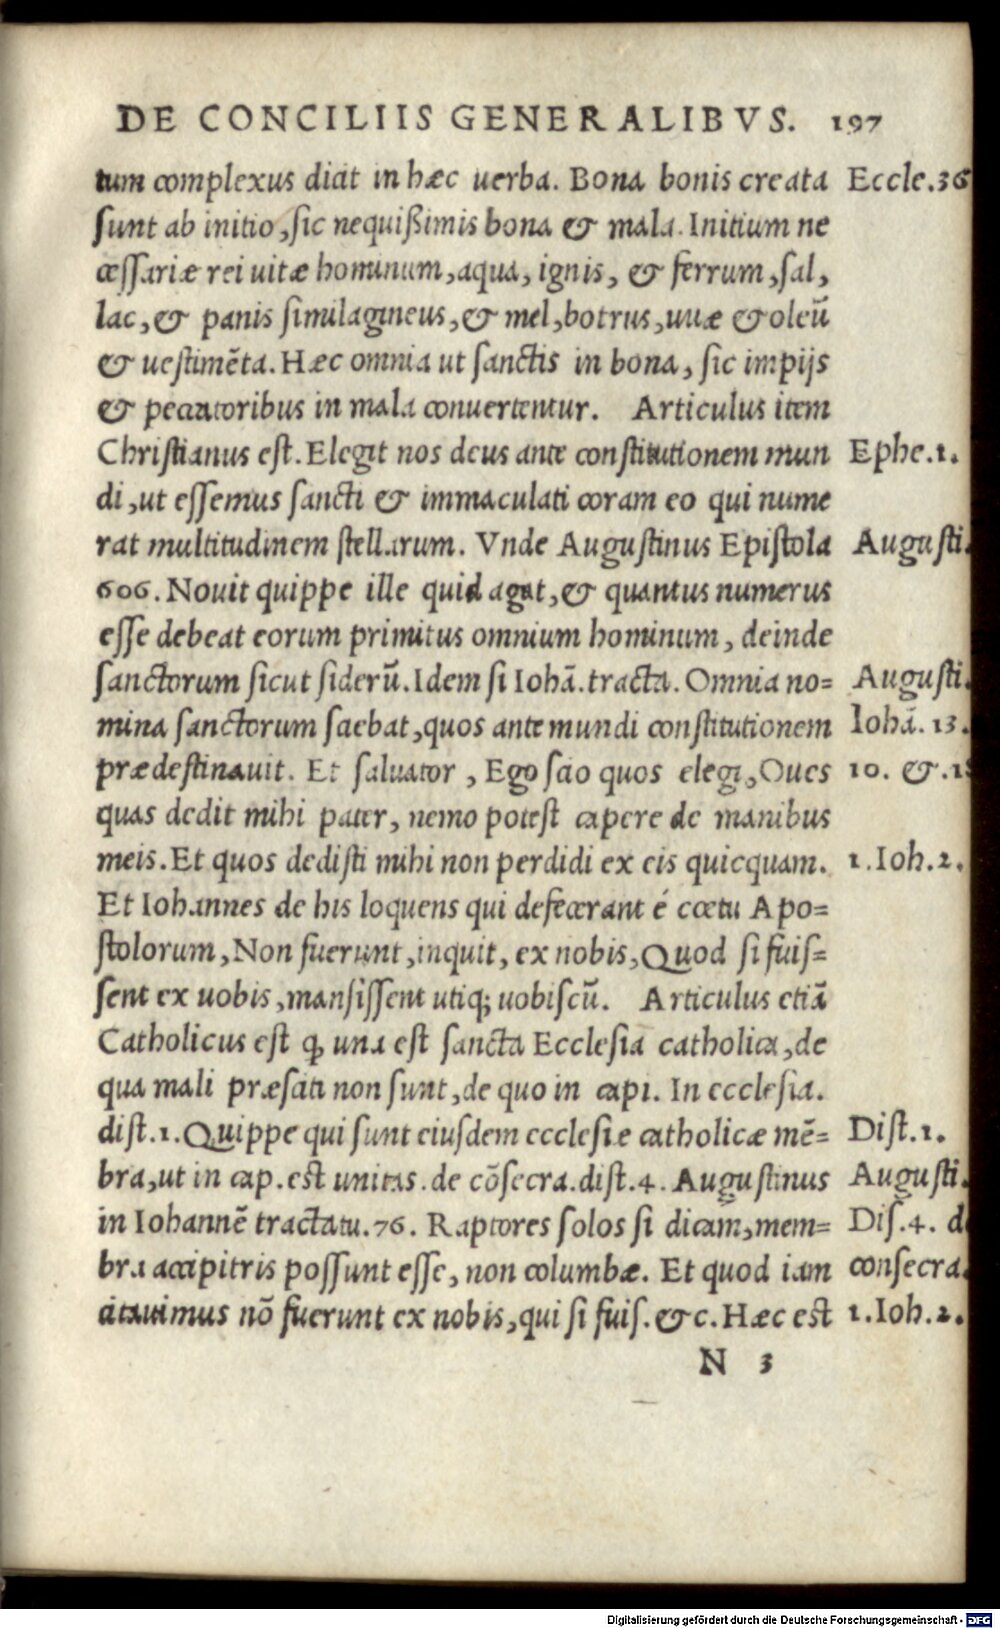 DE CONCILIIS GENERALIBVS. 197
tum complexus dicit in hæc uerba. Bona bonis creata Eccle.36
sunt ab initio, sic nequißimis bona & mala. Initium ne
cessariæ rei uitæ hominum, aqua, ignis, & ferrum, sal,
lac, & panis similagineus, & mel, botrus, uuæ & oleū
& uestimēta. Hæc omnia ut sanctis in bona, sic impijs
& peccatoribus in mala conuertentur. Articulus item
Christianus est. Elegit nos deus ante constitutionem mun Ephe.1.
di, ut essemus sancti & immaculati coram eo qui nume
rat multitudinem stellarum. Vnde Augustinus Epistola Augusti.
606. Nouit quippe ille quid agat, & quantus numerus
esse debeat eorum primitus omnium hominum, deinde
sanctorum sicut siderū. Idem si Iohā. tracta. Omnia no= Augusti.
mina sanctorum sciebat, quos ante mundi constitutionem Iohā. 13.
prædestinauit. Et saluator, Ego scio quos elegi, Oues 10. &.18
quas dedit mihi pater, nemo potest capere de manibus
meis. Et quos dedisti mihi non perdidi ex eis quicquam. 1.Ioh.2.
Et Iohannes de his loquens qui defecerant é cœtu Apo=
stolorum, Non fuerunt, inquit, ex nobis, Quod si fuis=
sent ex uobis, mansissent utiq; uobiscū. Articulus etiā
Catholicus est ꝙ una est sancta Ecclesia catholica, de
qua mali præsciti non sunt, de quo in capi. In ecclesia.
dist.1. Quippe qui sunt eiusdem ecclesiæ catholicæ mē= Dist.1.
bra, ut in cap. est unitas. de cōsecra. dist.4. Augustinus Augusti.
in Iohannē tractatu.76. Raptores solos si dicam, mem= Dis.4. d
bra accipitris possunt esse, non columbæ. Et quod iam consecra.
citauimus nō fuerunt ex nobis, qui si fuis. &c. Hæc est 1.Ioh.2.
N 3
Digitalisierung gefördert durch die Deutsche Forschungsgemeinschaft - DFG